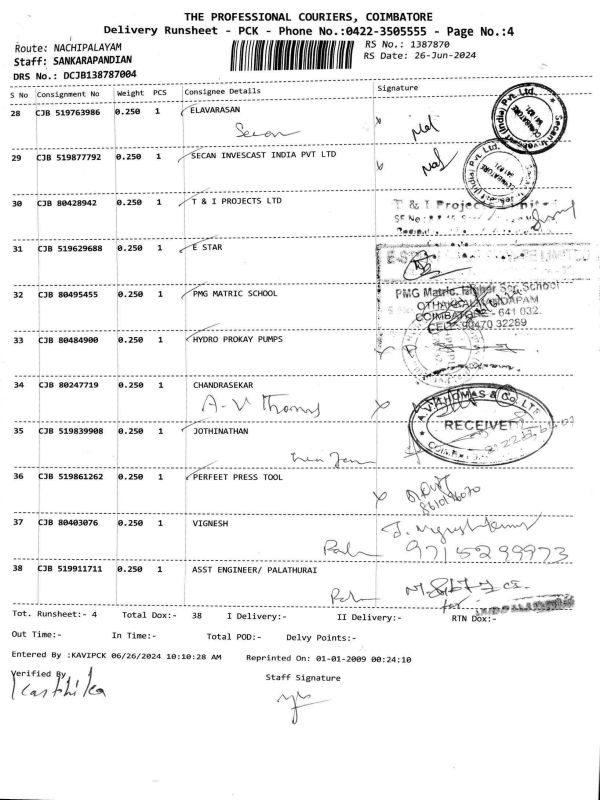 THE PROFESSIONAL COURIERS, COIMBATORE
Delivery Runsheet - PCK - Phone No.:0422-3505555 - Page No.:4
Route: NACHIPALAYAM
RS No.: 1387870
Staff: SANKARAPANDIAN
RS Date: 26-Jun-2024
DRS No.: DCJB138787004
S No Consignment No Weight PCS Consignee Details Signature
28 CJB 519763986 0.250 1 ELAVARASAN
Secan
29 CJB 519877792 0.250 1 SECAN INVESCAST INDIA PVT LTD
30 CJB 80428942 0.250 1 T & I PROJECTS LTD
T & I Projects Limited
31 CJB 519629688 0.250 1 E STAR
32 CJB 80495455 0.250 1 PMG MATRIC SCHOOL
PMG Matric. Higher Sec. School
OTHAKKALMANDAPAM
COIMBATORE - 641 032.
CELL: 90470 32289
33 CJB 80484900 0.250 1 HYDRO PROKAY PUMPS
34 CJB 80247719 0.250 1 CHANDRASEKAR
A-V Thomas
A.V. THOMAS & CO. LTD
RECEIVED
35 CJB 519839908 0.250 1 JOTHINATHAN
36 CJB 519861262 0.250 1 PERFEET PRESS TOOL
37 CJB 80403076 0.250 1 VIGNESH
9715299973
38 CJB 519911711 0.250 1 ASST ENGINEER/ PALATHURAI
Tot. Runsheet:- 4 Total Dox:- 38 I Delivery:- II Delivery:- RTN Dox:-
Out Time:- In Time:- Total POD:- Delvy Points:-
Entered By :KAVIPCK 06/26/2024 10:10:28 AM Reprinted On: 01-01-2009 00:24:10
Verified By
Staff Signature
Karthika